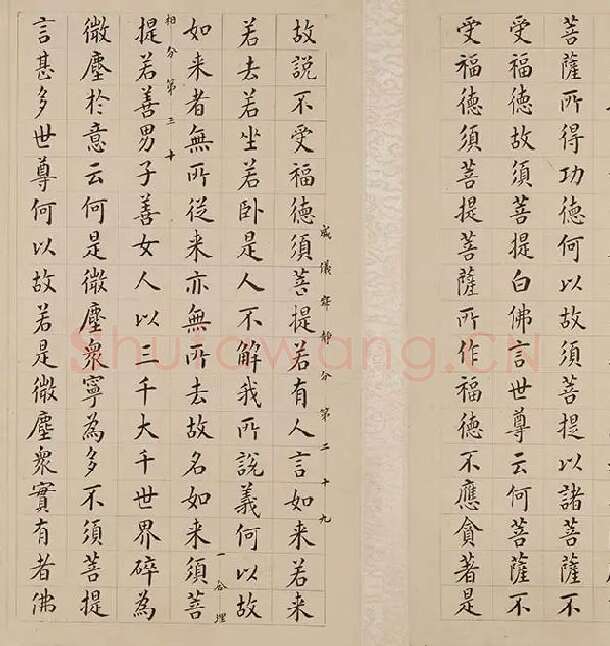 菩薩所得功德何以故須菩提以諸菩薩不
受福德故須菩提白佛言世尊云何菩薩不
受福德須菩提菩薩所作福德不應貪著是
威儀寂静分第二十九
故說不受福德須菩提若有人言如来若来
若去若坐若卧是人不解我所說義何以故
一合理
如来者無所從来亦無所去故名如来須菩
相分第三十
提若善男子善女人以三千大千世界碎為
微塵於意云何是微塵衆寧為多不須菩提
言甚多世尊何以故若是微塵衆實有者佛
Shufawang.CN